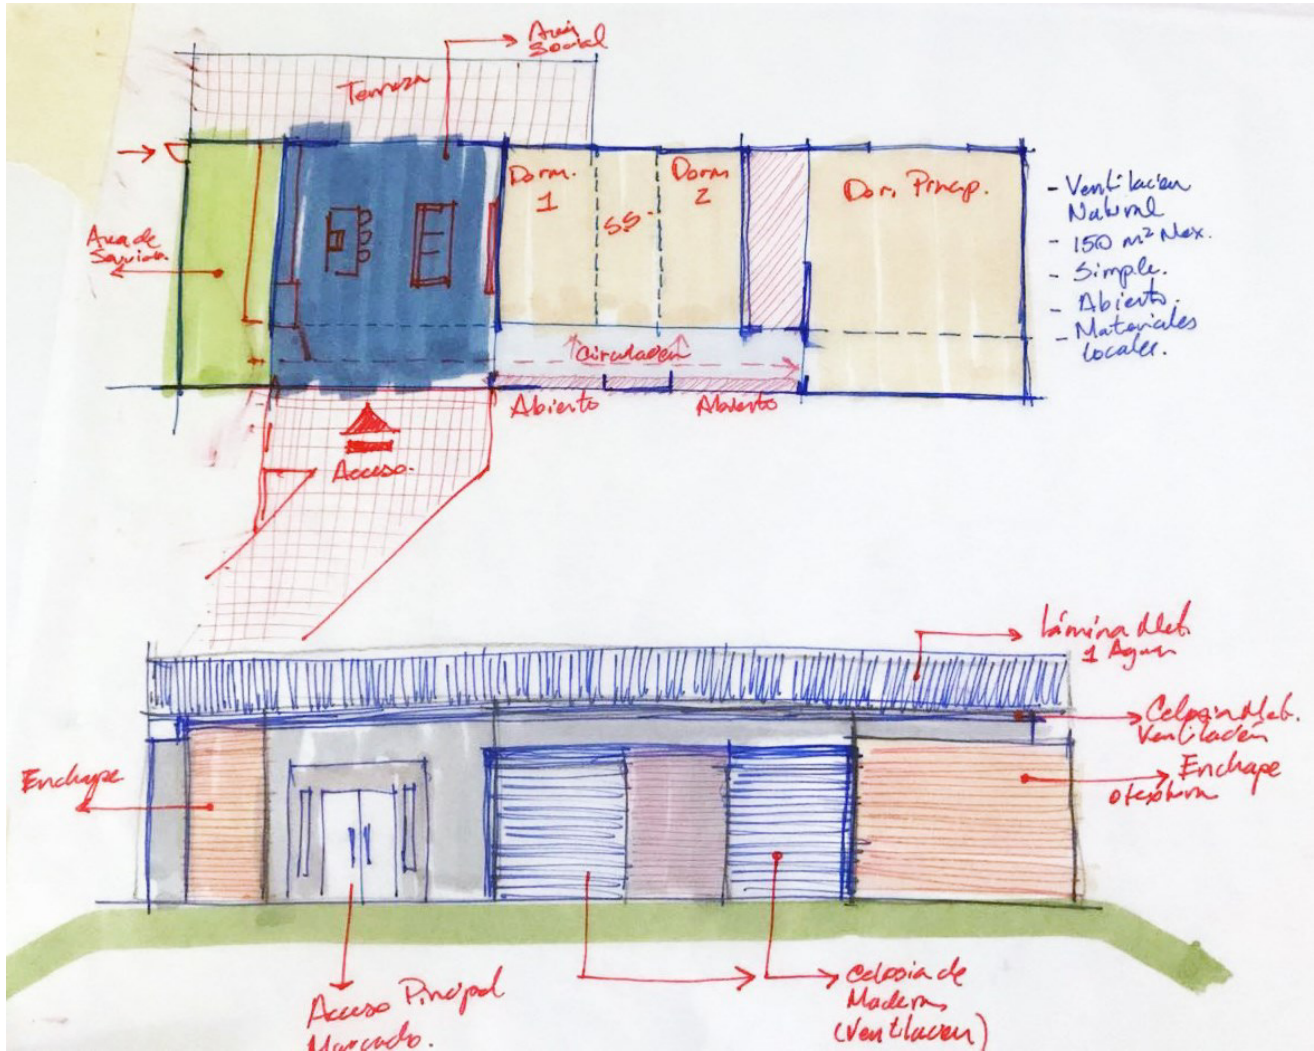 Area
Social
Terraza
Dorm.
1
SS.
Dorm
2
Dor. Princip.
Area de
Servicio.
Circulación
Abierto
Abierto
Acceso.
- Ventilacion
Natural
- 150 m² Max.
- Simple.
- Abierto.
- Materiales
locales.
Lámina Met.
1 Agua
Celosia Met.
Ventilación
Enchape
Enchape
Acceso Pincipal
Marcado.
Celosia de
Madera
(Ventilacion)